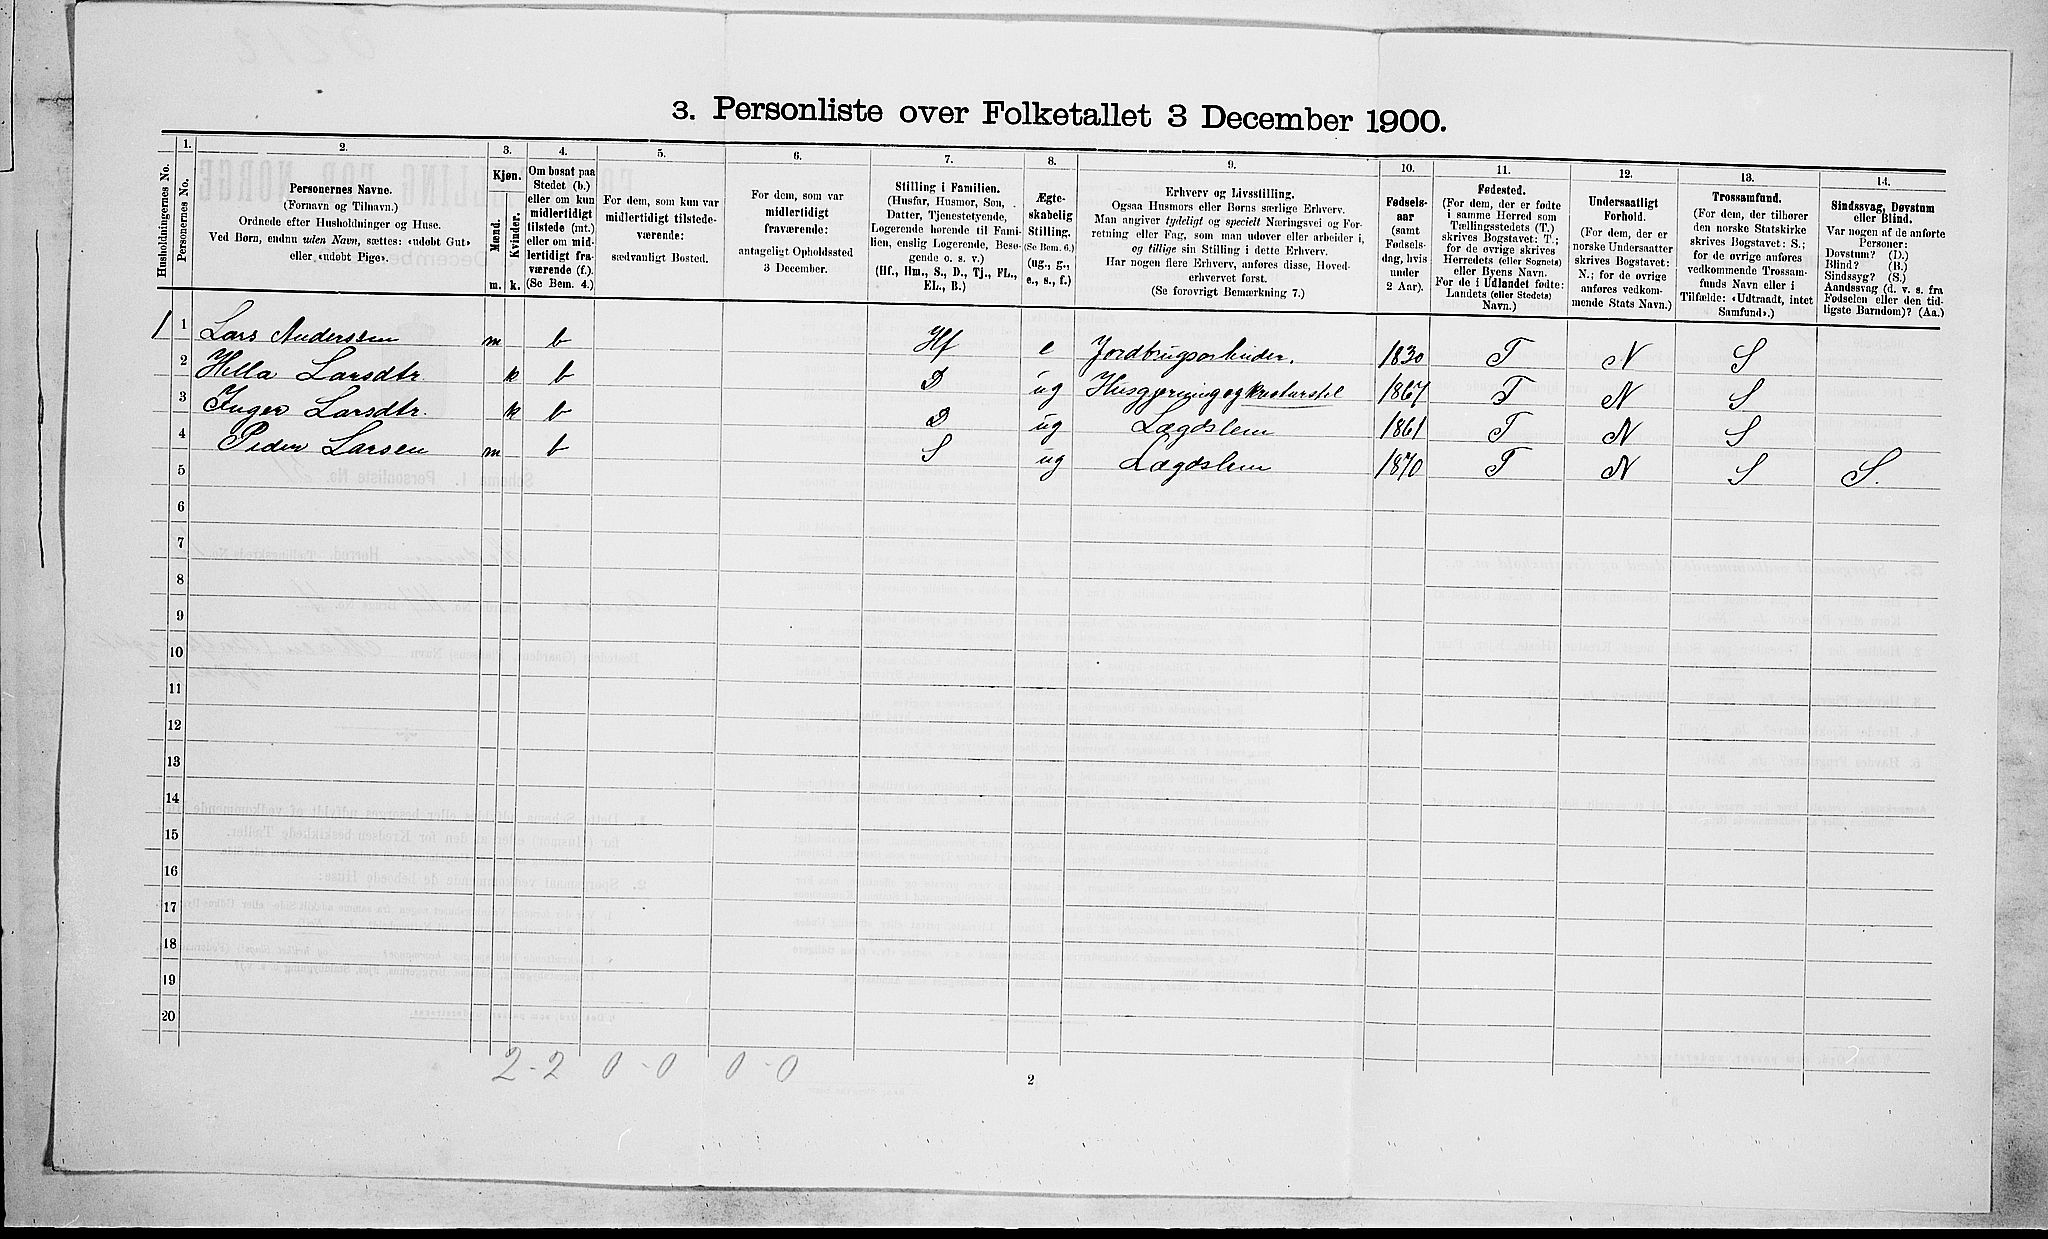 3. Personliste over Folketallet 3 December 1900.
Husholdningernes No.
1.
Personernes No.
2.
Personernes Navne.
(Fornavn og Tilnavn.)
Ordnede efter Husholdninger og Huse.
Ved Børn, endnu uden Navn, sættes: «udøbt Gut»
eller «udøbt Pige».
3.
Kjøn.
Mænd.
Kvinder.
m. k.
4.
Om bosat paa
Stedet (b.)
eller om kun
midlertidigt
tilstede (mt.)
eller om mid-
lertidigt fra-
værende (f.).
(Se Bem. 4.)
5.
For dem, som kun var
midlertidigt tilstede-
værende:
sædvanligt Bosted.
6.
For dem, som var
midlertidigt
fraværende:
antageligt Opholdssted
3 December.
7.
Stilling i Familien.
(Husfar, Husmor, Søn,
Datter, Tjenestetyende,
Logerende hørende til Fami-
lien, enslig Logerende, Besø-
gende o. s. v.)
(Hf., Hm., S., D., Tj., FL.,
EL., B.)
8.
Ægte-
skabelig
Stilling.
(Se Bem. 6.)
(ug., g.,
e., s., f.)
9.
Erhverv og Livsstilling.
Ogsaa Husmors eller Børns særlige Erhverv.
Man angiver tydeligt og specielt Næringsvei og For-
retning eller Fag, som man udøver eller arbeider i,
og tillige sin Stilling i dette Erhverv.
Har nogen flere Erhverv, anføres disse, Hoved-
erhvervet først.
(Se forøvrigt Bemærkning 7.)
10.
Fødsels-
aar
(samt
Fødsels-
dag, hvis
under
2 Aar).
11.
Fødested.
(For dem, der er fødte
i samme Herred som
Tællingsstedets (T.)
skrives Bogstavet: T.;
for de øvrige skrives
Herredets (eller Sognets)
eller Byens Navn.
For de i Udlandet fødte:
Landets (eller Stedets)
Navn.)
12.
Undersaatligt
Forhold.
(For dem, der er
norske Undersaatter
skrives Bogstavet:
N.; for de øvrige
anføres vedkom-
mende Stats Navn.)
13.
Trossamfund.
(For dem, der tilhører
den norske Statskirke
skrives Bogstavet: S.;
for de øvrige anføres
vedkommende Trossam-
funds Navn eller i
Tilfælde: «Udtraadt, intet
Samfund».)
14.
Sindssvag, Døvstum
eller Blind.
Var nogen af de anførte
Personer:
Døvstum? (D.)
Blind? (B.)
Sindssyg? (S.)
Aandssvag (d. v. s. fra
Fødselen eller den tid-
ligste Barndom)? (Aa.)
1 1 Lars Anderssen m b Hf e Jordbrugsarbeider. 1830 T N S
2 Hella Larsdtr. k b D ug Husgjerning og kreaturstel 1867 T N S
3 Inger Larsdtr. k b D ug Lægdslem 1861 T N S
4 Peder Larsen m b S ug Lægdslem 1870 T N S S.
5
6
7
8
9
10
11
12
13
14
15
16
17
18
19
20
2 - 2 0 - 0 0 - 0
2